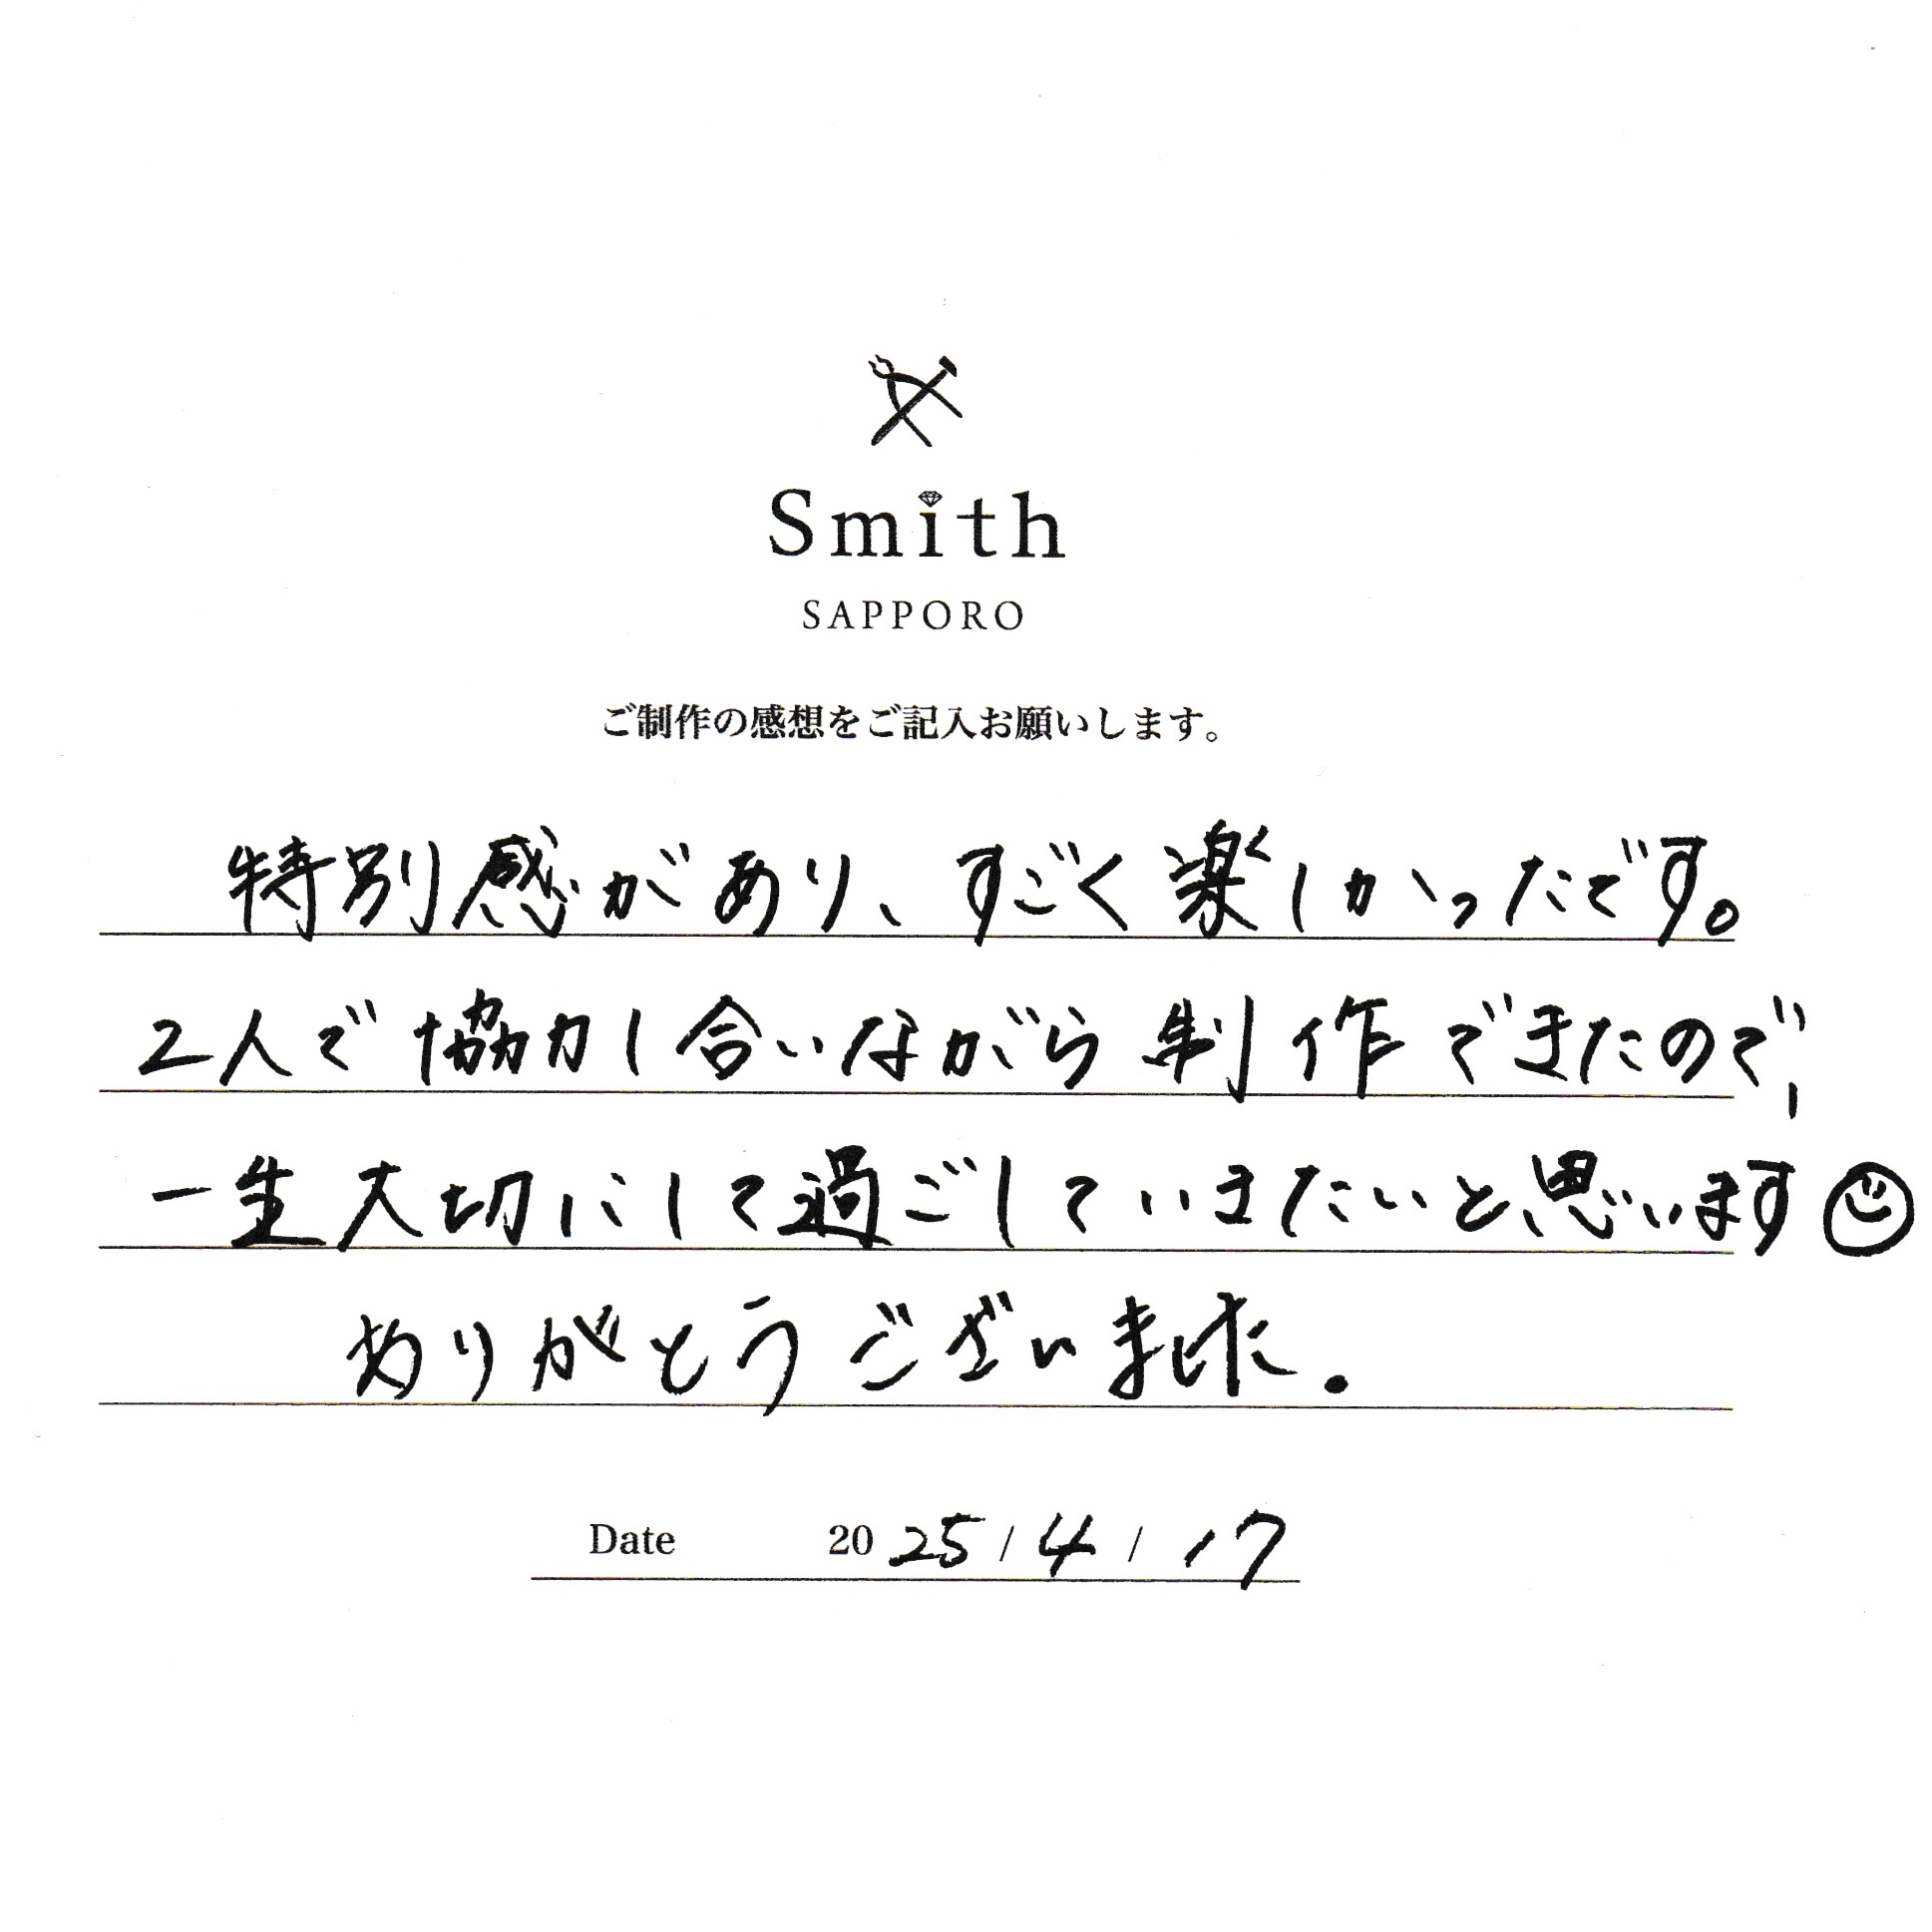 Smith
SAPPORO
ご制作の感想をご記入お願いします。
特別感があり、すごく楽しかったです。
2人で協力し合いながら制作できたので、
一生大切にして過ごしていきたいと思います
ありがとうございました.
Date 2025/4/17